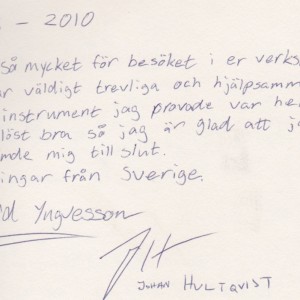 - 2010
så mycket för besöket i er verks
r väldigt trevliga och hjälpsamm
instrument jag provade var he
löst bra så jag är glad att j
mde mig till slut.
ingar från Sverige.
d Yngvesson
JH
JOHAN HULTQVIST